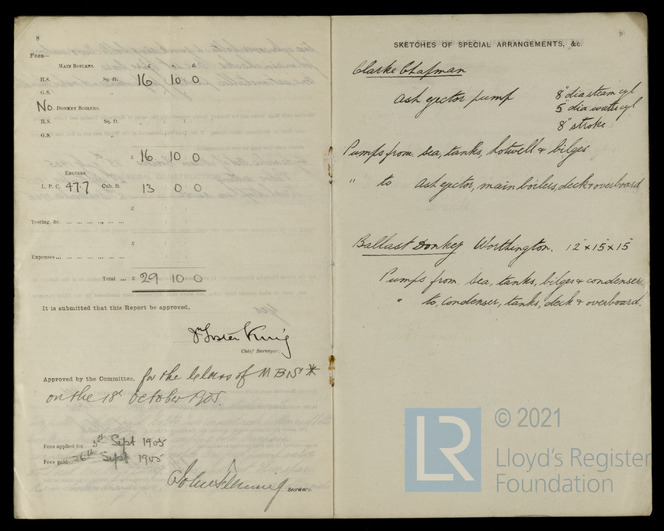 8
Fees—
MAIN BOILERS. £ s. d.
H.S. Sq. ft. 16 10 0
G.S. „
No DONKEY BOILERS.
H.S. Sq. ft.
G.S. „
£ 16 10 0
ENGINES.
L.P.C. 47.7 Cub. ft. 13 0 0
£
Testing, &c. ...
£
Expenses ...
Total ... £ 29 10 0
It is submitted that this Report be approved,
Foster King
Chief Surveyor.
Approved by the Committee, for the Class of M B S *
on the 18th October 1905.
Fees applied for 5th Sept 1905
Fees paid 26th Sept 1905
John Fleming
SECRETARY.
SKETCHES OF SPECIAL ARRANGEMENTS, &c.
Clarke Chapman
Ash ejector pump 8" dia steam cyl
5" dia water cyl
8" stroke
Pumps from sea, tanks, hotwell & bilges
" to ash ejector, main boilers, deck & overboard
Ballast Donkey Worthington. 12 × 15 × 15
Pumps from sea, tanks, bilges & condenser
" to condenser, tanks, deck & overboard.
LR
© 2021
Lloyd's Register
Foundation